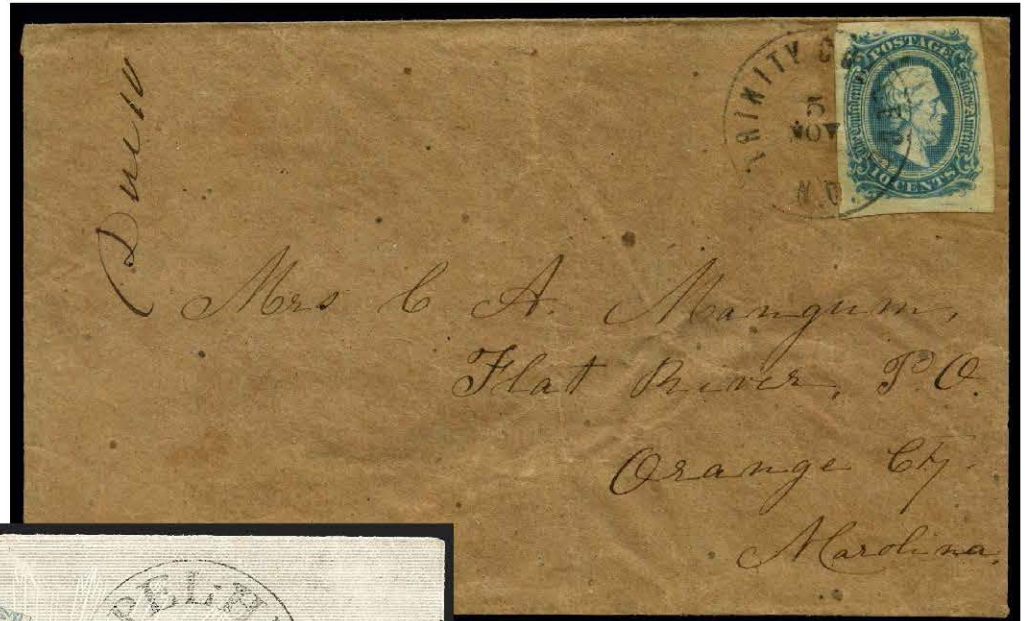 TRINITY C
5
NOV
N.C.
POSTAGE
The Confederate States of America
10 CENTS
Mrs C A. Mangum,
Flat River, P.O.
Orange Cty.
N Carolina
PEL H